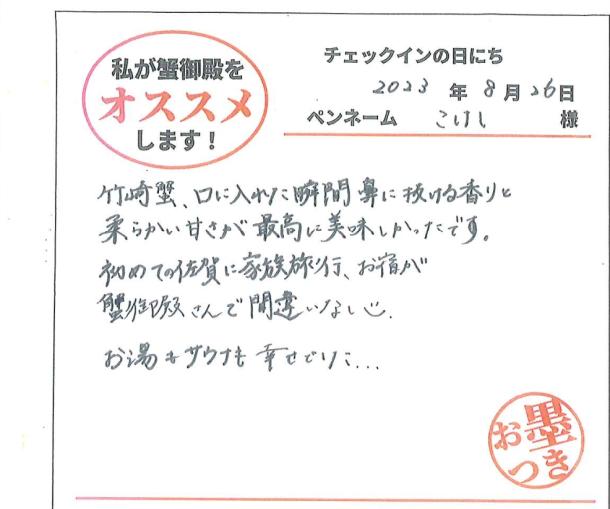 私が蟹御殿を
オススメ
します！
チェックインの日にち
2023 年 8 月 26 日
ペンネーム こけし 様
竹崎蟹、口に入れた瞬間鼻に抜ける香りと
柔らかい甘さが最高に美味しかったです。
初めての佐賀に家族旅行、お宿が
蟹御殿さんで間違いなし
お湯もサウナも幸せでした...
お墨
つき